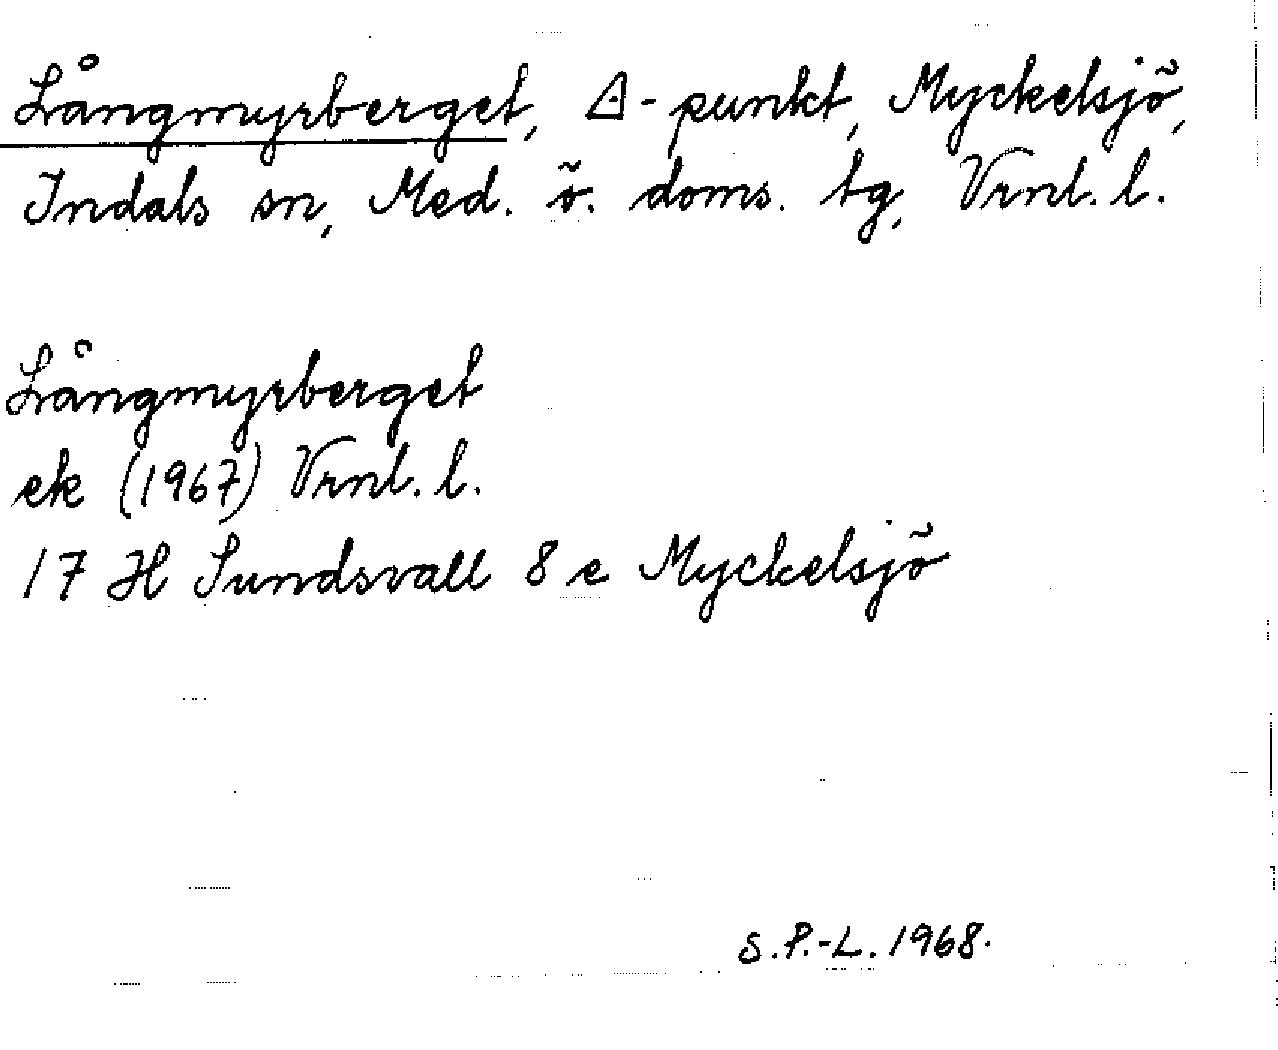 Långmyrberget, △-punkt, Myckelsjö,
Indals sn, Med. ö. doms. tg, Vrnl. l.
Långmyrberget
ek (1967) Vrnl. l.
17 H Sundsvall 8 e Myckelsjö
S.P.-L. 1968.